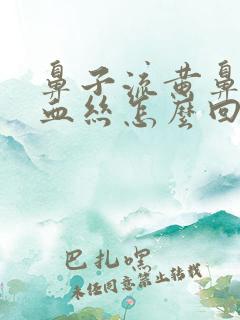 鼻子流黄鼻
血丝怎麽回
巴扎嘿
未经同意禁止转载